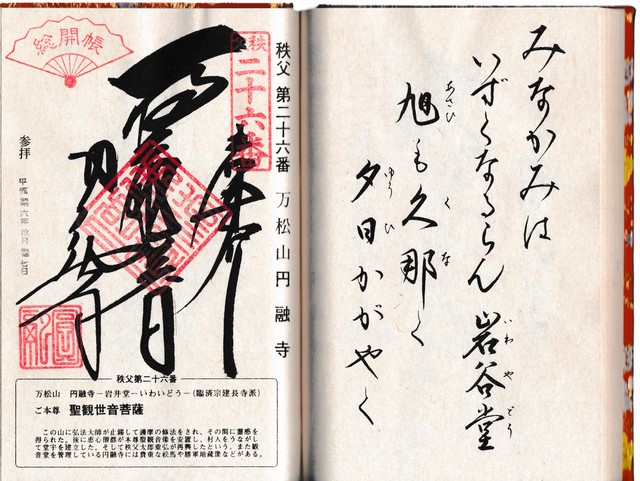 みなかみは
いずくなるらん 岩谷堂
いわやどう
旭も久那く
あさひ
くな
夕日かがやく
ゆうひ
秩父 第二十六番 万松山円融寺
秩父
二十六番
総開帳
参拝
秩父第二十六番
万松山 円融寺－岩井堂－いわいどう－(臨済宗建長寺派)
ご本尊 聖観世音菩薩
この山に弘法大師が止錫して護摩の修法をされ、その間に霊感を
得られた。後に恵心僧都が本尊聖観音像を安置し、村人をうながし
て堂宇を建立した。そして秩父太郎重弘が再興したという。また観
音堂を管理している円融寺には貴重な絵馬や勝軍地蔵像などがある。